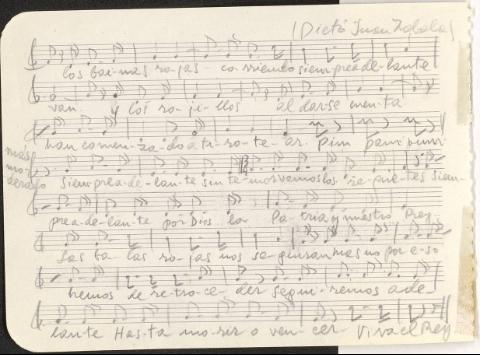 (Dictó Juan Zabala)
los boinas rojas - corriendo siempre adelante
van y los ro-ji-llos al darse cuenta
han comen-za-do a ti-ro-te-ar. Pim pam pum
más
mo-
derato
Siempre a-de-lan-te sin te-mor vamos los re-que-tés siem-
pre a-de-lan-te por Dios la Pa-tria y nuestro Rey.
Las ba-las ro-jas nos se-guiran mas no por e-so
hemos de re-tro-ce-der segui-remos a de
lante Has-ta mo-rir o ven-cer - Viva el Rey